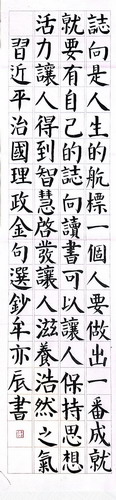 誌向是人生的航標一個人要做出一番成就
就要有自己的誌向讀書可以讓人保持思想
活力讓人得到智慧啓發讓人滋養浩然之氣
習近平治國理政金句選鈔牟亦辰書